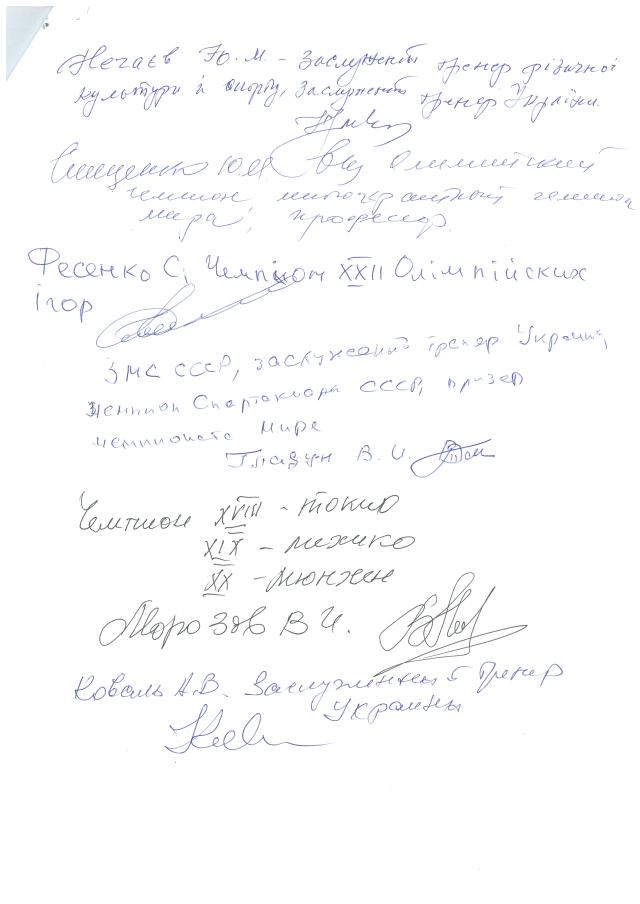 Нечаєв Ю. М. – Заслужений тренер фізичної
культури і спорту, Заслужений тренер України.
Олимпийский
чемпион, многократный чемпион
мира, профессор.
Фесенко С. Чемпіон XXII Олімпійских
ігор
ЗМС СССР, заслуженый тренер Украины,
чемпион Спартакиады СССР, призер
чемпионата мира
Гладун В. И.
Чемпион XVIII - токио
XIX - мехико
XX - мюнхен
Морозов В И.
Коваль А.В. Заслуженный тренер
Украины